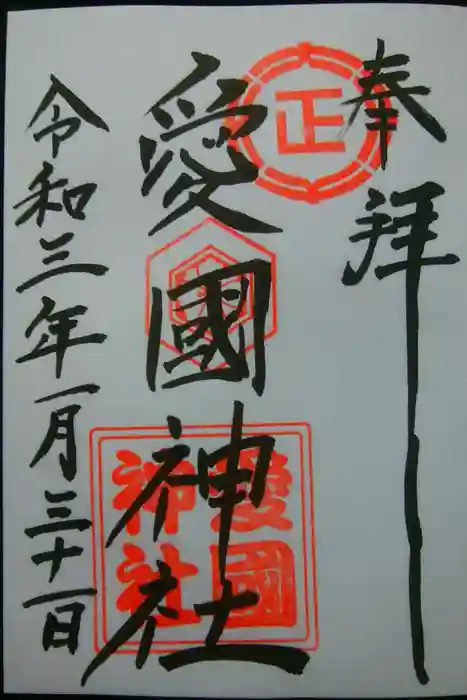 奉拝
正
愛國神社
愛國
神社
令和三年一月三十一日